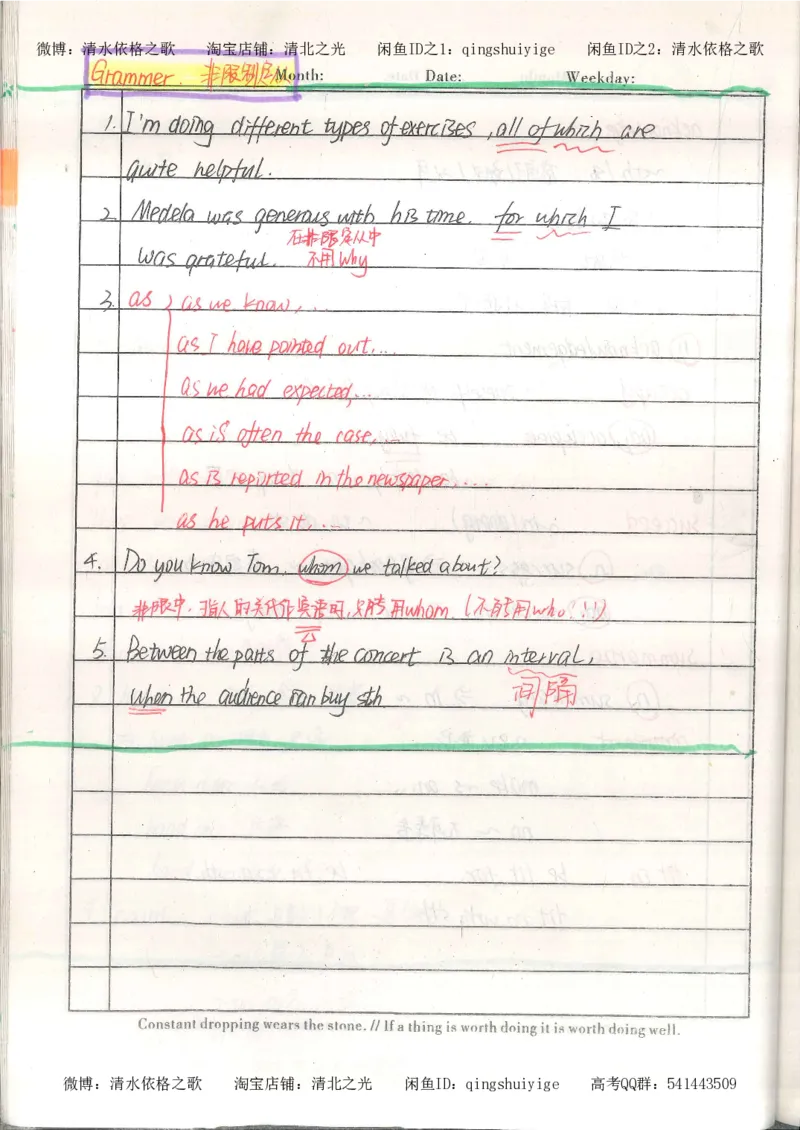 微博：清水依格之歌 淘宝店铺：清北之光 闲鱼ID之1：qingshuiyige 闲鱼ID之2：清水依格之歌
Grammer. 非限制定从 Month: Date: Weekday:
1. I'm doing different types of exercises, all of which are
quite helpful.
2. Medela was generous with his time. for which I
在非限定从中
was grateful. 不用why
3. as as we know, ...
as I have pointed out, ...
as we had expected, ...
as is often the case, ...
as is reported in the newspaper, ...
as he puts it, ...
4. Do you know Tom, whom we talked about?
非限中，指人的关代作宾语时，只能用whom. (不能用who?!!)
5. Between the parts of the concert is an interval,
when the audience can buy sth 间隔
Constant dropping wears the stone. // If a thing is worth doing it is worth doing well.
微博：清水依格之歌 淘宝店铺：清北之光 闲鱼ID：qingshuiyige 高考QQ群：541443509